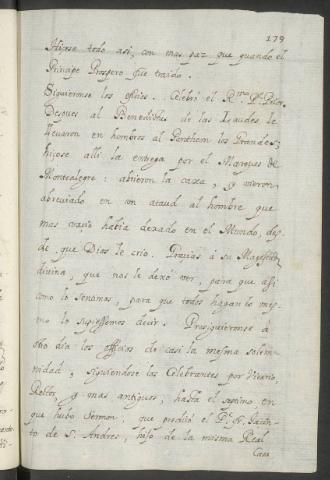 179
Hízose todo así, con mas paz que quando el
Principe Prospero fue traido.
Siguieronse los oficios. Celebró el R.mo P.e Prior.
Despues al Benedictus de las Laudes le
llevaron en hombros al Pantheon los Grandes;
hízose allí la entrega por el Marques de
Montealegre: abrieron la caxa, y vieron
abreviado en un ataud al hombre que
mas vacio habia dexado en el Mundo, des-
de, que Dios le crio. Gracias à su Magestad
divina, que nos le dexó ver, para que asi
como lo sentimos, para que todos hagan lo mes-
mo lo supiessemos decir. Prosiguieronse à
otro dia los officios de casi la mesma solem-
nidad, siguiendose los Celebrantes por Vicario,
Rector, y mas antiguos, hasta el septimo en
que hubo sermon; que predicó el P.e fr. Jacin-
to de S. Andres, hijo de la misma Real
Casa